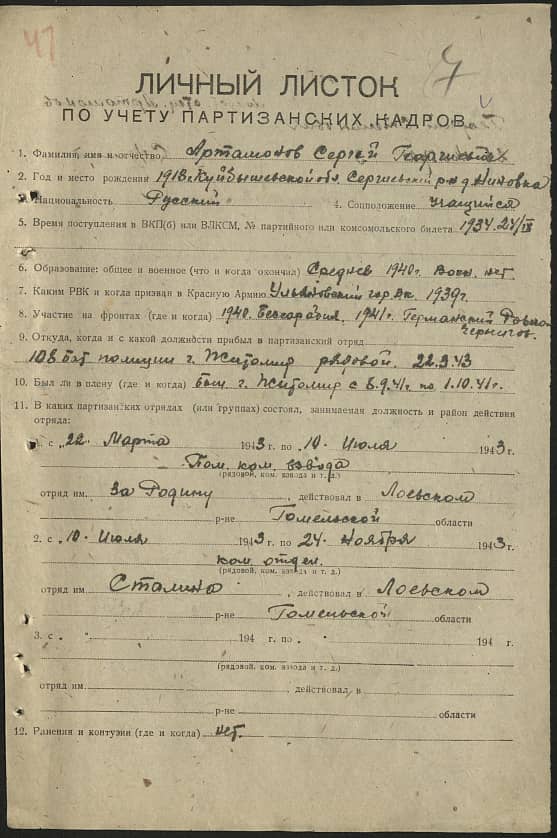 47
7
ЛИЧНЫЙ ЛИСТОК
ПО УЧЕТУ ПАРТИЗАНСКИХ КАДРОВ
1. Фамилия, имя и отчество Артамонов Сергей Георгиевич
2. Год и место рождения 1918 г. Куйбышевской обл. Сергиевский р-н д. Никовка
3. Национальность Русский 4. Соцположение учащийся
5. Время поступления в ВКП(б) или ВЛКСМ, № партийного или комсомольского билета 1934. 24/IX
6. Образование: общее и военное (что и когда окончил) Среднее 1940 г. Воен. нет
7. Каким РВК и когда призван в Красную Армию Ульяновский гор. вк. 1939 г.
8. Участие на фронтах (где и когда) 1940. Бессарабия. 1941 г. Германский
Чернигов.
9. Откуда, когда и с какой должности прибыл в партизанский отряд
108 бат полиции г. Житомир рядовой. 22.3.43
10. Был ли в плену (где и когда) был г. Житомир с 8.9.41 г. по 1.10.41 г.
11. В каких партизанских отрядах (или группах) состоял, занимаемая должность и район действия
отряда:
1. с „22. Марта 1943 г. по „10. Июля 1943 г.
Пом. ком. взвода
(рядовой, ком. взвода и т. д.)
отряд им. За Родину, действовал в Лоевском
р-не Гомельской области
2. с „10. Июля 1943 г. по „24. Ноября 1943 г.
ком. отдел.
(рядовой, ком. взвода и т. д.)
отряд им. Сталина, действовал в Лоевском
р-не Гомельской области
3. с „ “ 194 г. по „ “ 194 г.
(рядовой, ком. взвода и т. д.)
отряд им. , действовал в
р-не области
12. Ранения и контузии (где и когда) нет.